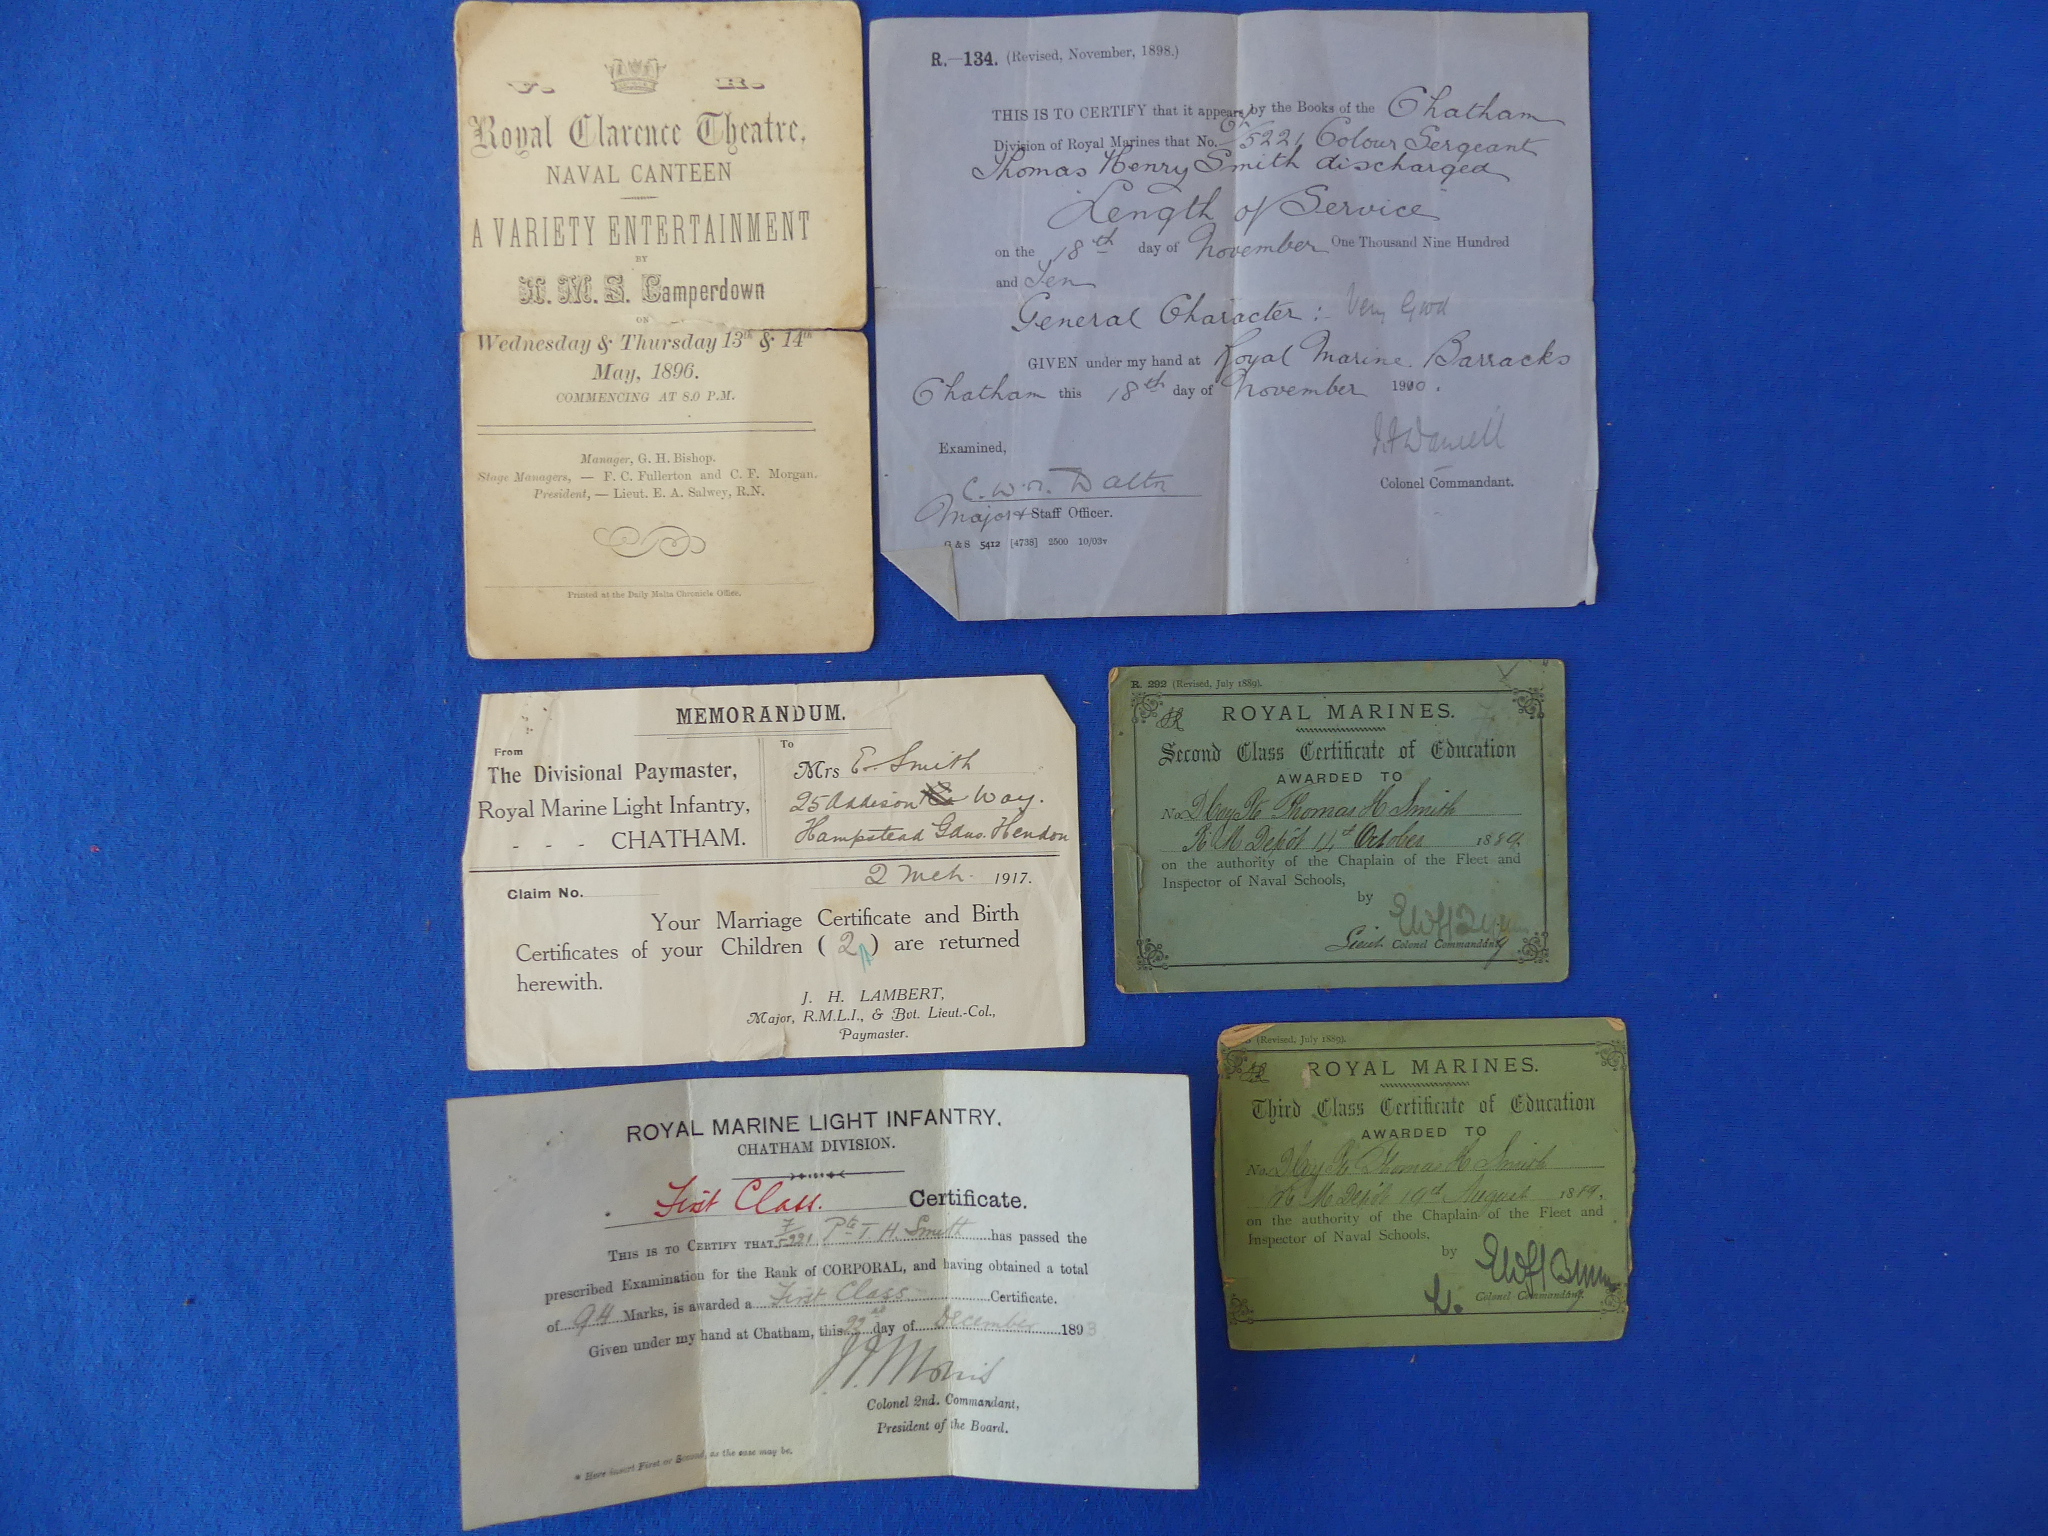 V. R.
Royal Clarence Theatre,
NAVAL CANTEEN
A VARIETY ENTERTAINMENT
BY
H. M. S. Camperdown
ON
Wednesday & Thursday 13th & 14th
May, 1896.
COMMENCING AT 8.0 P.M.
Manager, G. H. Bishop.
Stage Managers, — F. C. Fullerton and C. F. Morgan.
President, — Lieut. E. A. Salwey, R.N.
Printed at the Daily Malta Chronicle Office.
R.—134. (Revised, November, 1898.)
THIS IS TO CERTIFY that it appears by the Books of the Chatham
Division of Royal Marines that No. Ch/5221 Colour Sergeant
Thomas Henry Smith discharged
"Length of Service"
on the 18th day of November One Thousand Nine Hundred
and Ten
General Character :- Very Good
GIVEN under my hand at Royal Marine Barracks
Chatham this 18th day of November 1910.
Examined,
C. W. Dalton
Major & Staff Officer.
Colonel Commandant.
G & S 5412 [4738] 2500 10/03v
MEMORANDUM.
From
The Divisional Paymaster,
Royal Marine Light Infantry,
- - - CHATHAM.
To
Mrs E. Smith
25 Addison Way.
Hampstead Gdns. Hendon
2 Mch. 1917.
Claim No.
Your Marriage Certificate and Birth
Certificates of your Children ( 2 ) are returned
herewith.
J. H. LAMBERT,
Major, R.M.L.I., & Bvt. Lieut.-Col.,
Paymaster.
R. 292 (Revised, July 1889).
ROYAL MARINES.
Second Class Certificate of Education
AWARDED TO
No. D Coy Pte Thomas H Smith
R. M Depôt 14th October 1889.
on the authority of the Chaplain of the Fleet and
Inspector of Naval Schools,
by
Lieut. Colonel Commanding
(Revised, July 1889).
ROYAL MARINES.
Third Class Certificate of Education
AWARDED TO
No. D Coy Pte Thomas H Smith
R. M Depôt 19th August 1889.
on the authority of the Chaplain of the Fleet and
Inspector of Naval Schools,
by
Colonel Commanding.
ROYAL MARINE LIGHT INFANTRY.
CHATHAM DIVISION.
First Class. Certificate.
THIS IS TO CERTIFY THAT 5221 Pte T H. Smith has passed the
prescribed Examination for the Rank of CORPORAL, and having obtained a total
of 94 Marks, is awarded a First Class Certificate.
Given under my hand at Chatham, this 22nd day of December 1893
J. Morris
Colonel 2nd. Commandant,
President of the Board.
* Here insert First or Second, as the case may be.